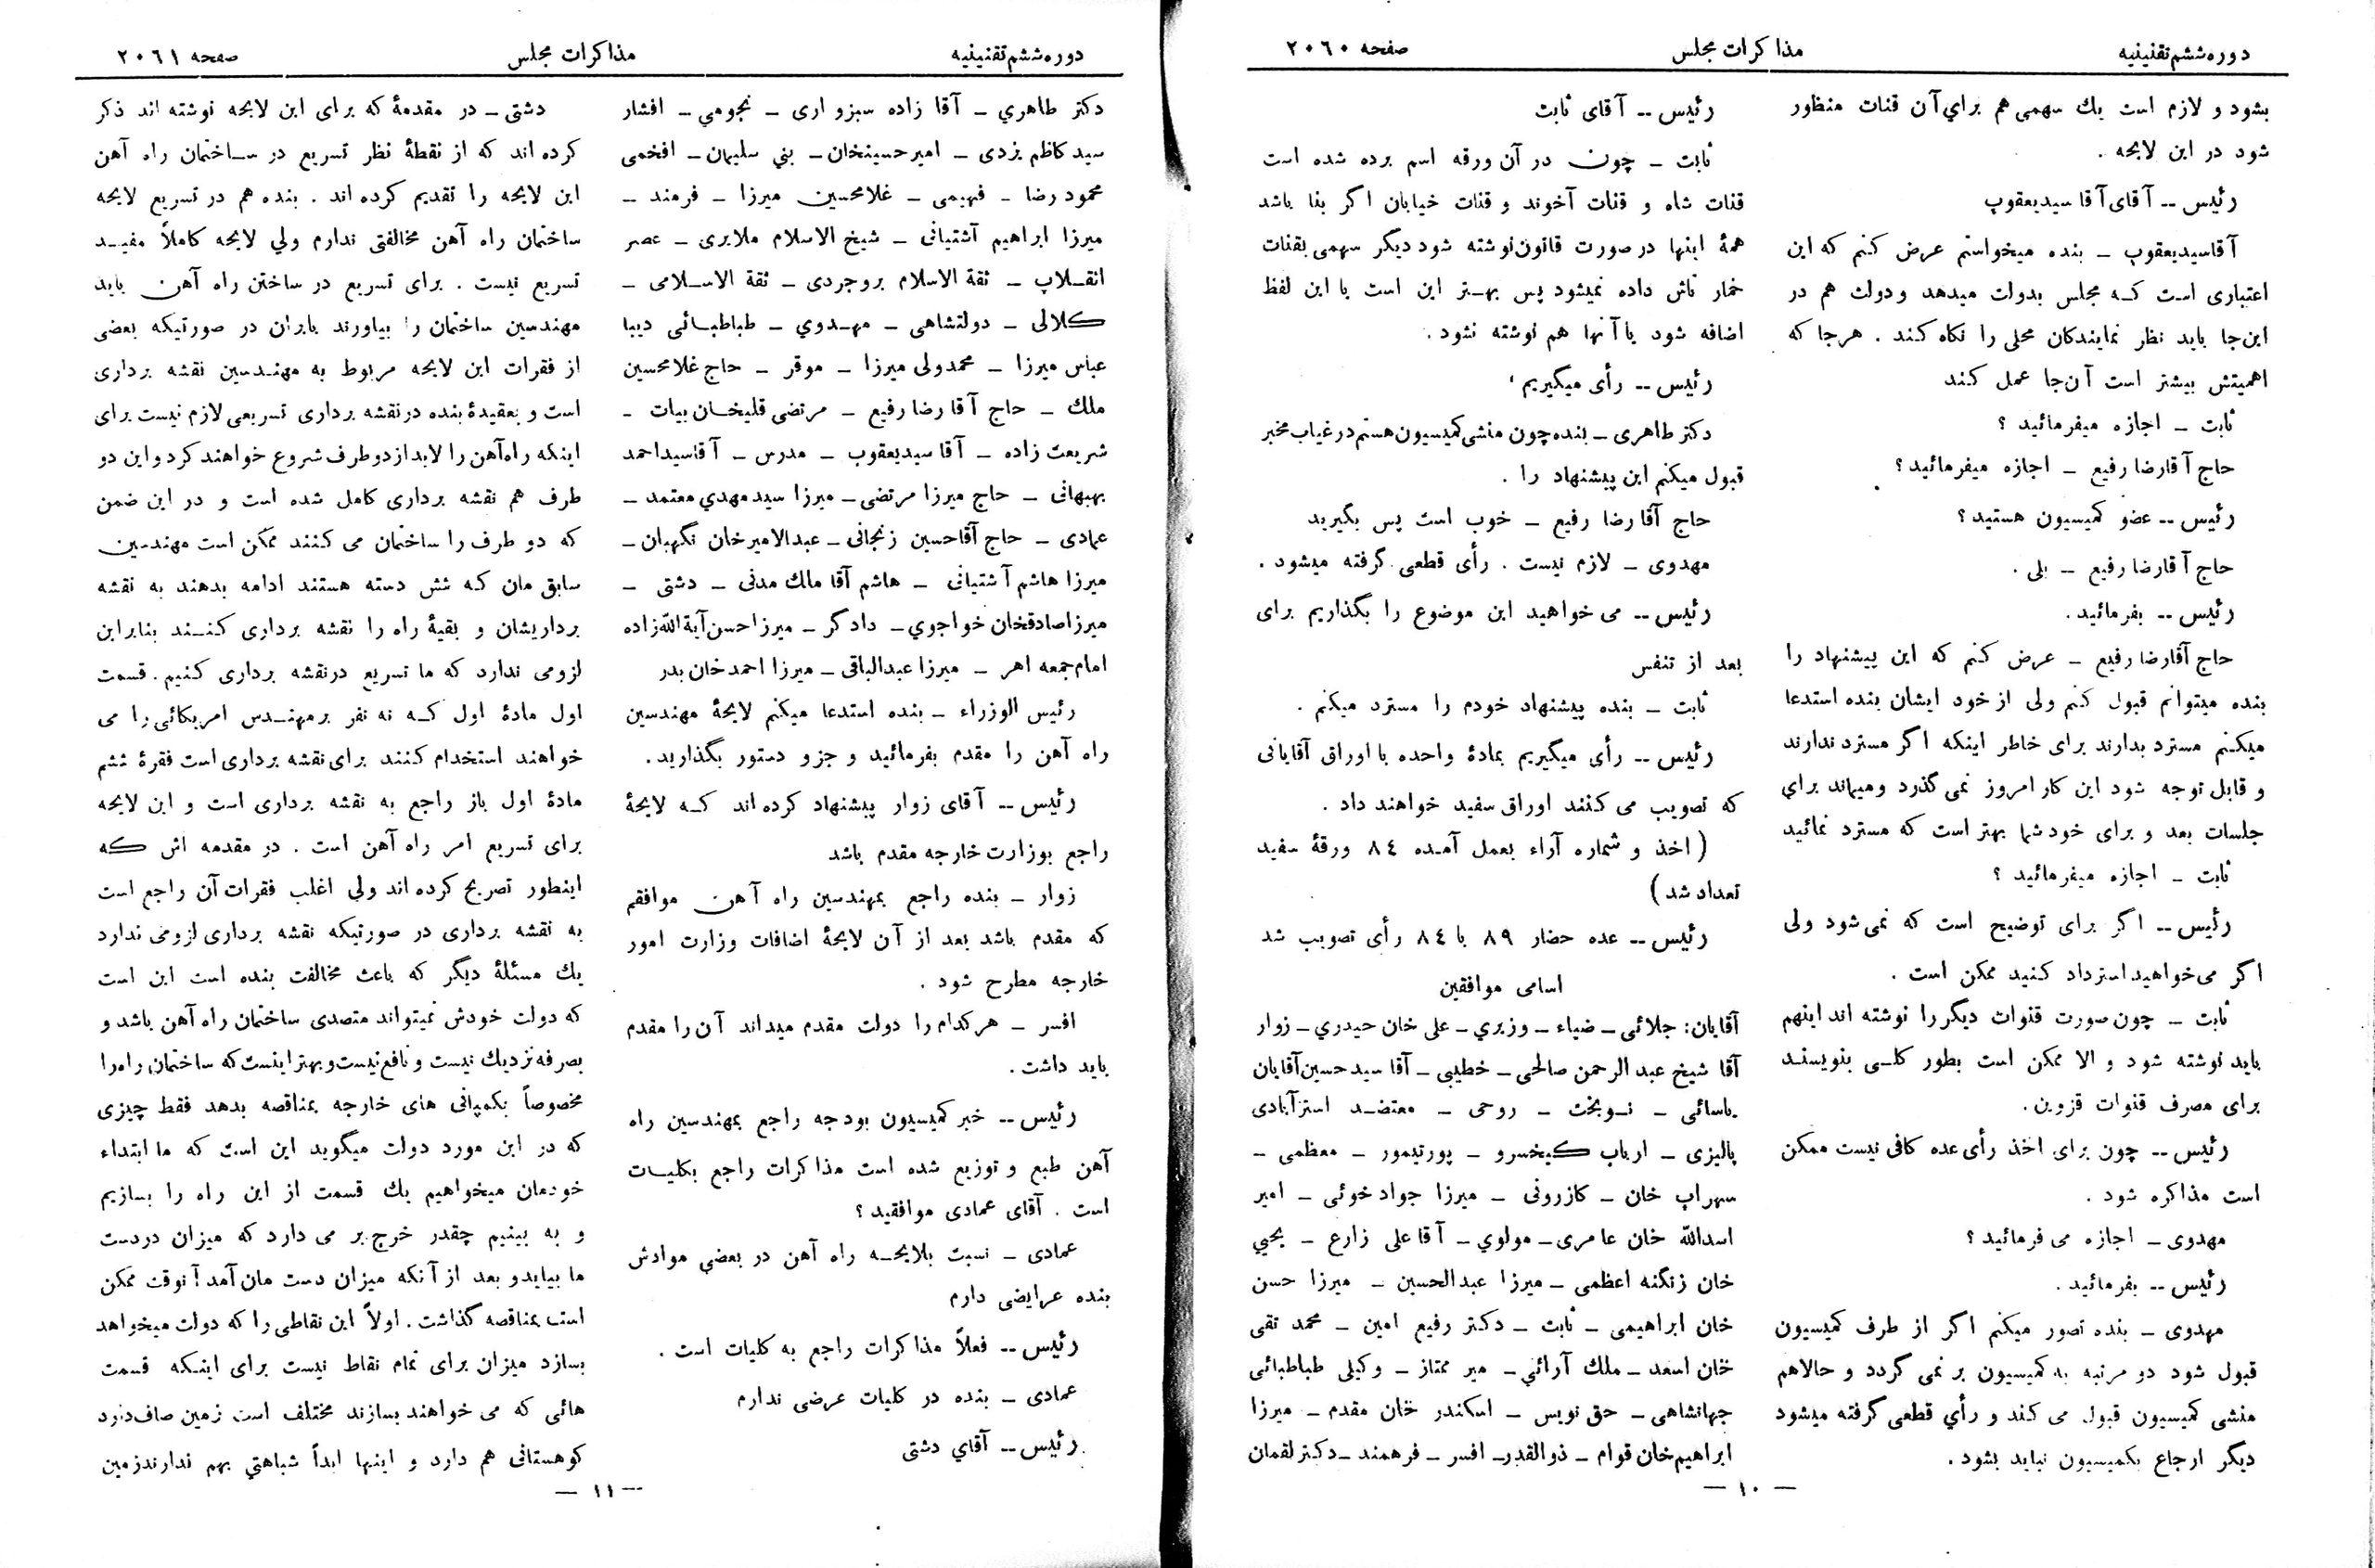 دوره ششم تقنینیه
مذاکرات مجلس
صفحه ۲۰۶۰
بشود و لازم است یك سهمی هم برای آن قنات منظور
شود در این لایحه .
رئیس -- آقای آقا سیدیعقوب
آقاسیدیعقوب – بنده میخواستم عرض کنم که این
اعتباری است که مجلس بدولت میدهد و دولت هم در
این‌جا باید نظر نمایندکان محلی را نکاه کـند . هرجا که
اهمیتش بیشتر است آن‌جا عمل کـند
ثابت – اجازه میفرمائید ؟
حاج آقارضا رفیع – اجازه میفرمائید؟
رئیس -- عضو کمیسیون هستید؟
حاج آقارضا رفیع – بلی .
رئیس -- بفرمائید.
حاج آقارضا رفیع – عرض کنم که این پیشنهاد را
بنده میتوانم قبول کنم ولی از خود ایشان بنده استدعا
میکنم مسترد بدارند برای خاطر اینکه اگر مسترد ندارند
و قابل توجه شود این کار امروز نمی گذرد ومیماند برای
جلسات بعد و برای خود شما بهتر است که مسترد نمائید
ثابت – اجازه میفرمائید ؟
رئیس -- اگر برای توضیح است که نمی شود ولی
اگر می‌خواهید استرداد کنید ممکن است .
ثابت – چون صورت قنوات دیگر را نوشته اند اینهم
باید نوشته شود و الا ممکن است بطور کلـی بنویسند
برای مصرف قنوات قزوین.
رئیس -- چون برای اخذ رأی عده کافی نیست ممکن
است مذاکره شود .
مهدوی – اجازه می فرمائید ؟
رئیس -- بفرمائید .
مهدوی – بنده تصور میکنم اگر از طرف کمیسیون
قبول شود دو مرتبه به کمیسیون بر نمی گردد و حالاهم
منشی کمیسیون قبول می کند و رأی قطعی گرفته میشود
دیگر ارجاع بکمیسیون نباید بشود .
رئیس -- آقای ثابت
ثابت – چون در آن ورقه اسم برده شده است
قنات شاه و قنات آخوند و قنات خیابان اگر بنا باشد
همهٔ اینها در صورت قانون نوشته شود دیگر سهمی بقنات
خمار تاش داده نمیشود پس بهـتر این است یا این لفظ
اضافه شود یا آنها هم نوشته نشود .
رئیس -- رأی میگیریم ،
دکتر طاهری – بنده چون منشی کمیسیون هستم در غیاب مخبر
قبول میکنم این پیشنهاد را .
حاج آقا رضا رفیع – خوب است پس بگیرید
مهدوی – لازم نیست . رأی قطعی گرفته میشود .
رئیس -- می خواهید این موضوع را بگذاریم برای
بعد از تنفس
ثابت – بنده پیشنهاد خودم را مسترد میکنم .
رئیس -- رأی میگیریم بمادهٔ واحده با اوراق آقایانی
که تصویب می کنند اوراق سفید خواهند داد .
( اخذ و شماره آراء بعمل آمده ۸٤ ورقهٔ سفید
تعداد شد )
رئیس -- عده حضار ۸۹ با ۸٤ رأی تصویب شد
اسامی موافقین
آقایان: جلائی – ضیاء – وزیری – علی خان حیدری – زوار
آقا شیخ عبد الرحمن صالحی – خطیبی – آقا سید حسین آقایان
یاسائی – نـوبخت – روحی – معتضـد استرآبادی
پالیزی – ارباب کیخسرو – پورتیمور – معظمی –
سهراب خان – کازرونی – میرزا جواد خوئی – امیر
اسدالله خان عامری – مولوی – آقا علی زارع – یحیی
خان زنگنه اعظمی – میرزا عبدالحسین – میرزا حسن
خان ابراهیمی – ثابت – دکتر رفیع امین – محمد تقی
خان اسعد – ملك آرائی – میر ممتاز – وکیلی طباطبائی
جهانشاهی – حق نویس – اسکندر خان مقدم – میرزا
ابراهیم خان قوام – ذوالقدر– افسر – فرهمند –دکتر لقمان
— ۱۰ —
دوره ششم تقنینیه
مذاکرات مجلس
صفحه ۲۰۶۱
دکتر طاهری – آقا زاده سبزواری – نجومی – افشار
سید کاظم یزدی – امیرحسینخان – بنی سلیمان – افخمی
محمود رضا – فهیمی – غلامحسین میرزا – فرمند –
میرزا ابراهیم آشتیانی – شیخ الاسلام ملایری – عصر
انقـلاب – ثقة الاسلام بروجردی – ثقة الاسـلامی –
کلالی – دولتشاهی – مهـدوی – طباطبـائی دیبا
عباس میرزا – محمدولی میرزا – موقر – حاج غلامحسین
ملك – حاج آقا رضا رفیع – مرتضی قلیخـان بیات –
شریعت زاده – آقا سیدیعقوب – مدرس – آقاسیداحمد
بهبهانی – حاج میرزا مرتضی – میرزا سید مهدی معتمد –
عمادی – حاج آقاحسین زنجانی – عبدالامیرخان نگهبان –
میرزا هاشم آشتیانی – هاشم آقا ملك مدنی – دشتی –
میرزاصادقخان خواجوی – دادگر – میرزا حسن آیة‌الله‌زاده
امام‌جمعه اهر – میرزا عبدالباقی – میرزا احمد خان بدر
رئیس الوزراء – بنده استدعا میکنم لایحهٔ مهندسین
راه آهن را مقدم بفرمائید و جزو دستور بگذارید.
رئیس -- آقای زوار پیشنهاد کرده اند کـه لایحهٔ
راجع بوزارت خارجه مقدم باشد
زوار – بنده راجع بمهندسین راه آهن موافقم
که مقدم باشد بعد از آن لایحهٔ اضافات وزارت امور
خارجه مطرح شود .
افسر – هرکدام را دولت مقدم میداند آن را مقدم
باید داشت.
رئیس -- خبر کمیسیون بودجه راجع بمهندسین راه
آهن طبع و توزیع شده است مذاکرات راجع بکلیـات
است . آقای عمادی موافقید ؟
عمادی – نسبت بلایحـه راه آهن در بعضی موادش
بنده عرایضی دارم
رئیس -- فعلاً مذاکرات راجع به کلیات است .
عمادی – بنده در کلیات عرضی ندارم
رئیس -- آقای دشتی
دشتی – در مقدمهٔ که برای این لایحه نوشته اند ذکر
کرده اند که از نقطهٔ نظر تسریع در سـاختمان راه آهن
این لایحه را تقدیم کرده اند . بنده هم در تسریع لایحه
ساختمان راه آهن مخالفتی ندارم ولی لایحه کاملاً مفیـد
تسریع نیست . برای تسریع در ساختن راه آهن باید
مهندسین ساختمان را بیاورند بایران در صورتیکه بعضی
از فقرات این لایحه مربوط به مهنـدسین نقشه برداری
است و بعقیدهٔ بنده در نقشه برداری تسریعی لازم نیست برای
اینکه راه‌آهن را لابد از دو طرف شروع خواهند کرد و این دو
طرف هم نقشه برداری کامل شده است و در این ضمن
که دو طرف را ساختمان می کنند ممکن است مهندسین
سابق مان کـه شش دسته هستند ادامه بدهند به نقشه
برداریشان و بقیهٔ راه را نقشه برداری کنـند بنابراین
لزومی ندارد که ما تسریع در نقشه برداری کنیم. قسمت
اول مادهٔ اول کـه نه نفر بر مهنـدس امریکائی را می
خواهند استخدام کنند برای نقشه برداری است فقرهٔ ششم
مادهٔ اول باز راجع به نقشه برداری است و این لایحه
برای تسریع امر راه آهن است . در مقدمه اش که
اینطور تصریح کرده اند ولی اغلب فقرات آن راجع است
به نقشه برداری در صورتیکه نقشه برداری لزومی ندارد
یك مسئلهٔ دیگر که باعث مخالفت بنده است این است
که دولت خودش نمیتواند متصدی ساختمان راه آهن باشد و
بصرفه نزدیك نیست و نافع نیست و بهتر اینست که ساختمان راه را
مخصوصاً بکمپانی های خارجه بمناقصه بدهد فقط چیزی
که در این مورد دولت میگوید این است که ما ابتداء
خودمان میخواهیم یك قسمت از این راه را بسازیم
و به بینیم چقدر خرج بر می دارد که میزان دردست
ما بیایدو بعد از آنکه میزان دست مان آمد آنوقت ممکن
است بمناقصه گذاشت . اولاً این نقاطی را که دولت میخواهد
بسازد میزان برای تمام نقاط نیست برای اینـکه قسمت
هائی که می خواهند بسازند مختلف است زمین صاف دارد
کوهستانی هم دارد و اینها ابداً شباهتی بهم ندارند زمین
— ۱۱ —